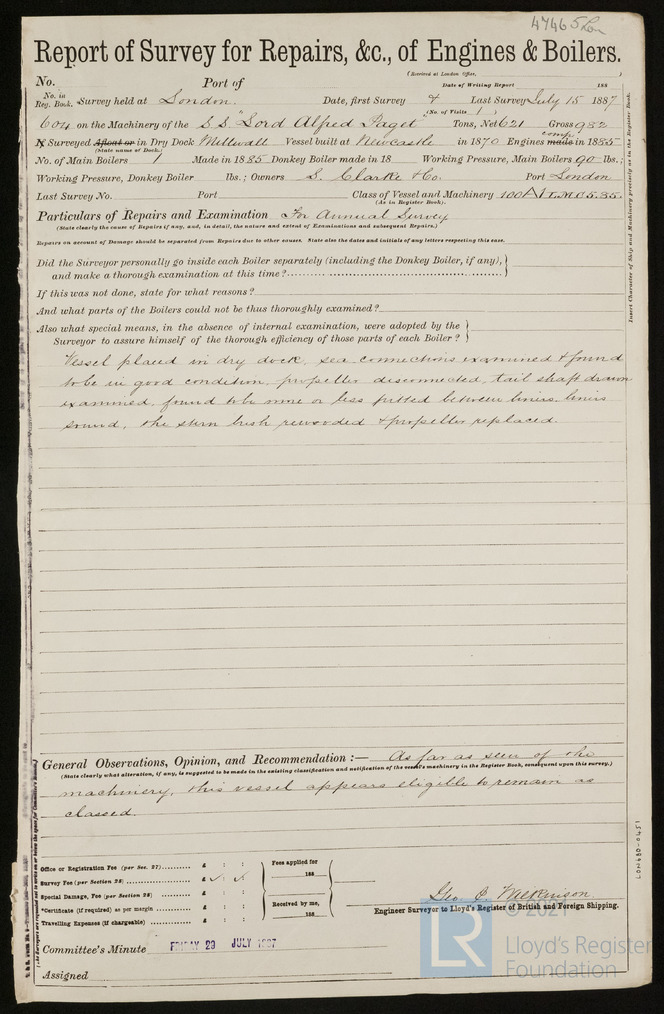 47465 Lon
Report of Survey for Repairs, &c., of Engines & Boilers.
(Received at London Office, )
No. Port of Date of Writing Report 188
No. in Reg. Book. Survey held at London. Date, first Survey & Last Survey July 15 1887
(No. of Visits 1 )
604 on the Machinery of the S.S. "Lord Alfred Paget" Tons, Net 621 Gross 982
Surveyed Afloat or in Dry Dock Millwall Vessel built at Newcastle in 1870 Engines made comp. in 1885
(State name of Dock.)
No. of Main Boilers 1 Made in 1885 Donkey Boiler made in 18 Working Pressure, Main Boilers 90 lbs.;
Working Pressure, Donkey Boiler lbs.; Owners S. Clarke & Co. Port London
Last Survey No. Port Class of Vessel and Machinery 100A1 L.M.C. 5.85.
(As in Register Book).
Particulars of Repairs and Examination For Annual Survey
(State clearly the cause of Repairs if any, and, in detail, the nature and extent of Examinations and subsequent Repairs.)
Repairs on account of Damage should be separated from Repairs due to other causes. State also the dates and initials of any letters respecting this case.
Did the Surveyor personally go inside each Boiler separately (including the Donkey Boiler, if any),
and make a thorough examination at this time?
If this was not done, state for what reasons?
And what parts of the Boilers could not be thus thoroughly examined?
Also what special means, in the absence of internal examination, were adopted by the
Surveyor to assure himself of the thorough efficiency of those parts of each Boiler?
Vessel placed in dry dock, sea connections examined & found
to be in good condition, propeller disconnected, tail shaft drawn
examined, found to be more or less pitted between liners. liners
sound, the stern bush rewooded & propeller replaced.
Insert Character of Ship and Machinery precisely as in the Register Book.
General Observations, Opinion, and Recommendation :— As far as seen of the
(State clearly what alteration, if any, is suggested to be made in the existing classification and notification of the vessel's machinery in the Register Book, consequent upon this survey.)
machinery, this vessel appears eligible to remain as
classed.
Office or Registration Fee (per Sec. 27) £ : :
Survey Fee (per Section 28) £ : :
Special Damage, Fee (per Section 28) £ : :
*Certificate (if required) as per margin £ : :
Travelling Expenses (if chargeable) £ : :
Fees applied for
188
Received by me,
188
Geo. C. Wilkinson.
Engineer Surveyor to Lloyd's Register of British and Foreign Shipping.
Committee's Minute FRIDAY 29 JULY 1887
Assigned
LON680-0451
© 2021
LR
Lloyd's Register
Foundation